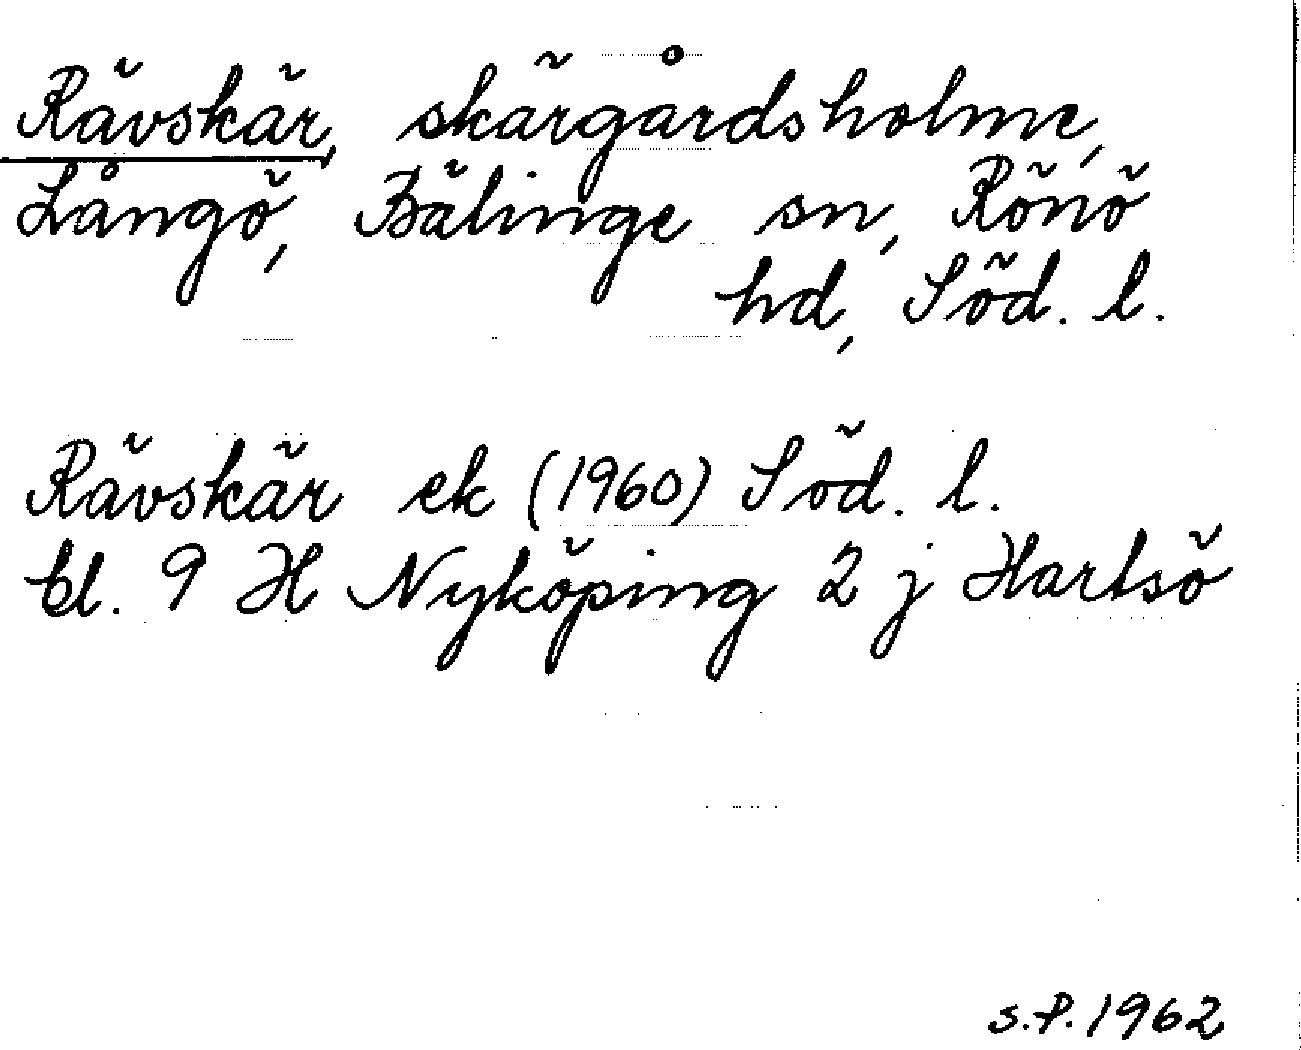 Rävskär, skärgårdsholme,
Långö, Bälinge sn, Rönö
hd, Söd. l.
Rävskär ek (1960) Söd. l.
bl. 9 H Nyköping 2 j Hartsö
S.P. 1962